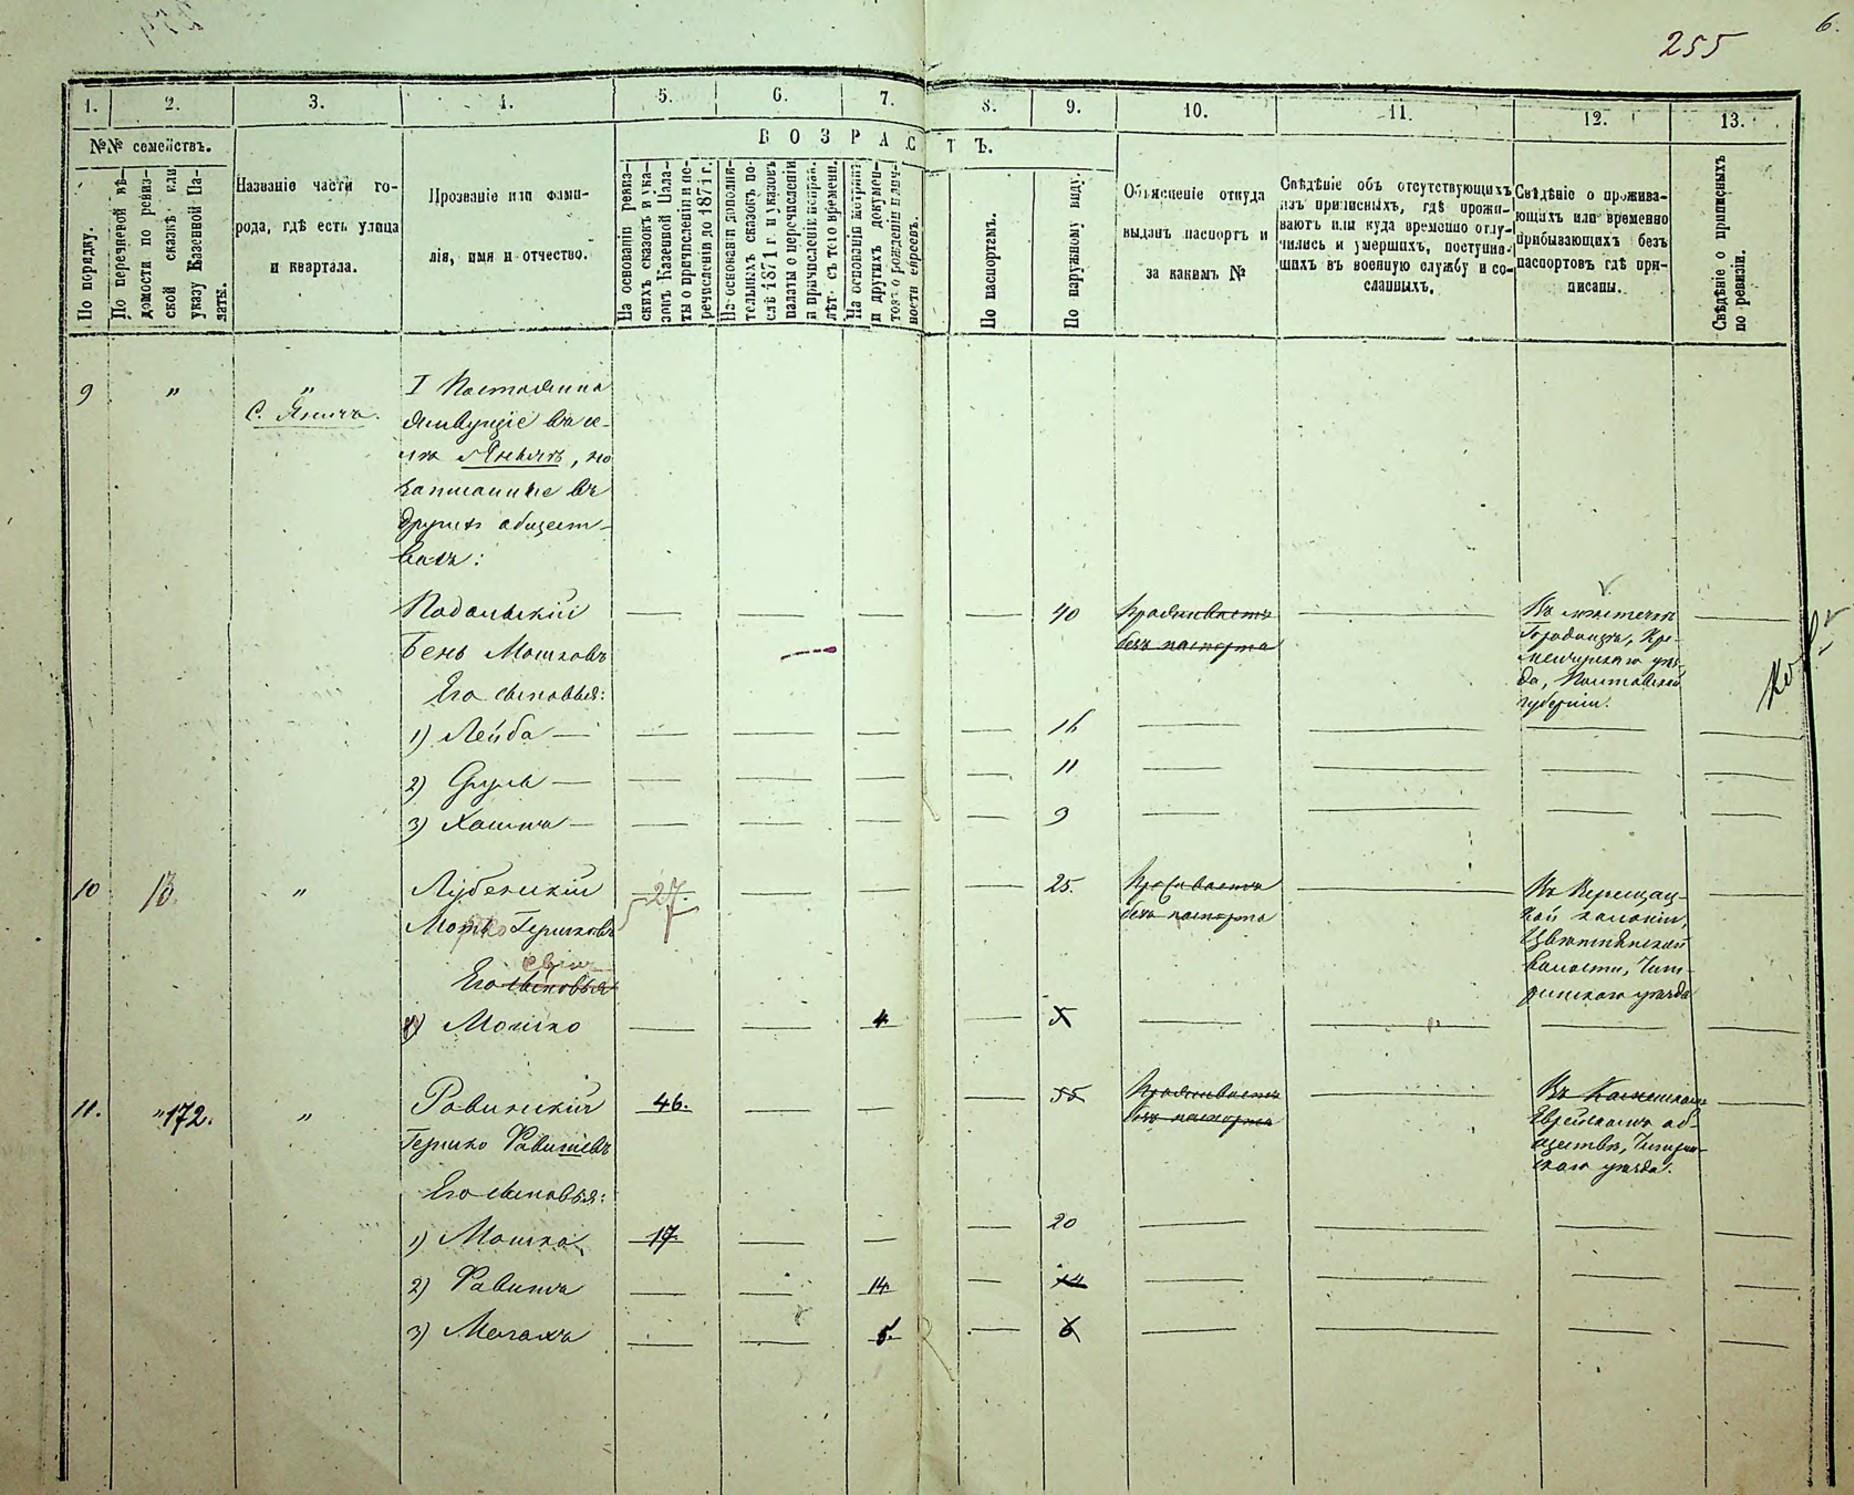 255
6.
1.
2.
3.
4.
5.
6.
7.
8.
9.
10.
11.
12.
13.
№№ семействъ.
По порядку.
По перечневой вѣ-
домости по ревиз-
ской сказкѣ или
указу Казенной Па-
латы.
Названіе части го-
рода, гдѣ есть улица
и квартала.
Прозваніе или фами-
лія, имя и отчество.
ВОЗРАСТЪ.
На основаніи ревиз-
скихъ сказокъ и ука-
зовъ Казенной Пала-
ты о причисленіи и пе-
речисленіи до 1871 г.
На основаніи дополни-
тельныхъ сказокъ по-
слѣ 1871 г. и указовъ
палаты о перечисленіи
и причисленіи
лѣтъ съ того времени.
На основаніи метрикъ
и другихъ докумен-
товъ о рожденіи
ности евреевъ.
По паспортамъ.
По наружному виду.
Объясненіе откуда
выданъ паспортъ и
за какимъ №
Свѣдѣніе объ отсутствующихъ
изъ приписныхъ, гдѣ прожи-
ваютъ или куда временно отлу-
чились и умершихъ, поступив-
шихъ въ военную службу и со-
сланныхъ.
Свѣдѣніе о прожива-
ющихъ или временно
прибывающихъ безъ
паспортовъ гдѣ при-
писаны.
Свѣдѣніе о приписныхъ
по ревизіи.
9 " "
С. Яничъ.
I Постоянно
живущіе въ се-
лѣ Яничъ, но
записанные въ
другихъ общест-
вахъ:
Подольскій — — — — 40 Проживаетъ — Въ мѣстечкѣ —
Бень Мошковъ безъ паспорта Городищѣ, Кре-
менчугскаго уѣз-
да, Полтавской
губерніи.
Его сыновья:
1) Лейба — — — — — 16 — — — —
2) Сруль — — — — — 11 — — — —
3) — — — — — 9 — — — —
10 13 " Лубенскій 27. — — — 25. Проживаетъ — Въ Верещац- —
Гершковъ безъ паспорта кой колоніи,
волости, Чиги-
ринскаго уѣзда
Его сыновья
сынъ
1) Мошко — — 4 — 5 — — — —
11. "172. " Равинскій 46. — — — 55 Проживаетъ — Въ —
Гершко безъ паспорта Еврейскомъ об-
ществѣ, Чигирин-
скаго уѣзда.
Его сыновья:
1) Мошко 17 — — — 20 — — — —
2) — — 14 — 14 — — — —
3) — — 5. — 6 — — — —